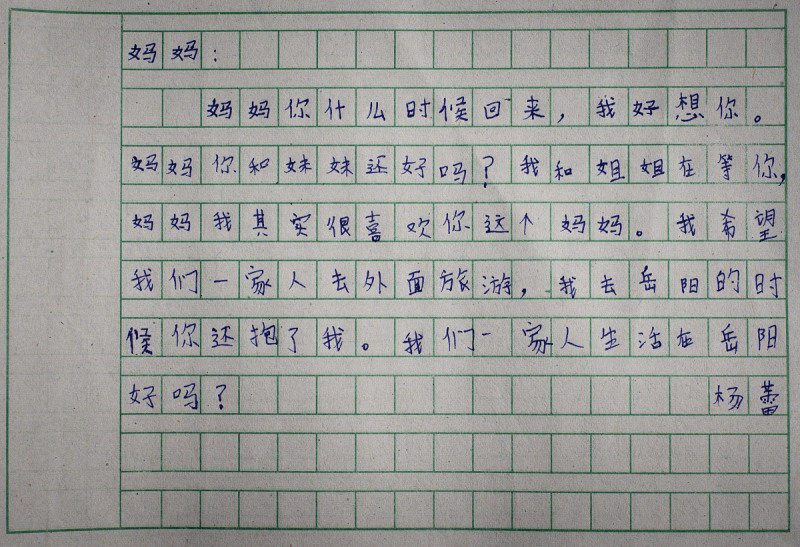 妈妈：
妈妈你什么时候回来，我好想你。
妈妈你和妹妹还好吗？我和姐姐在等你，
妈妈我其实很喜欢你这个妈妈。我希望
我们一家人去外面旅游，我去岳阳的时
候你还抱了我。我们一家人生活在岳阳
好吗？ 杨蕾